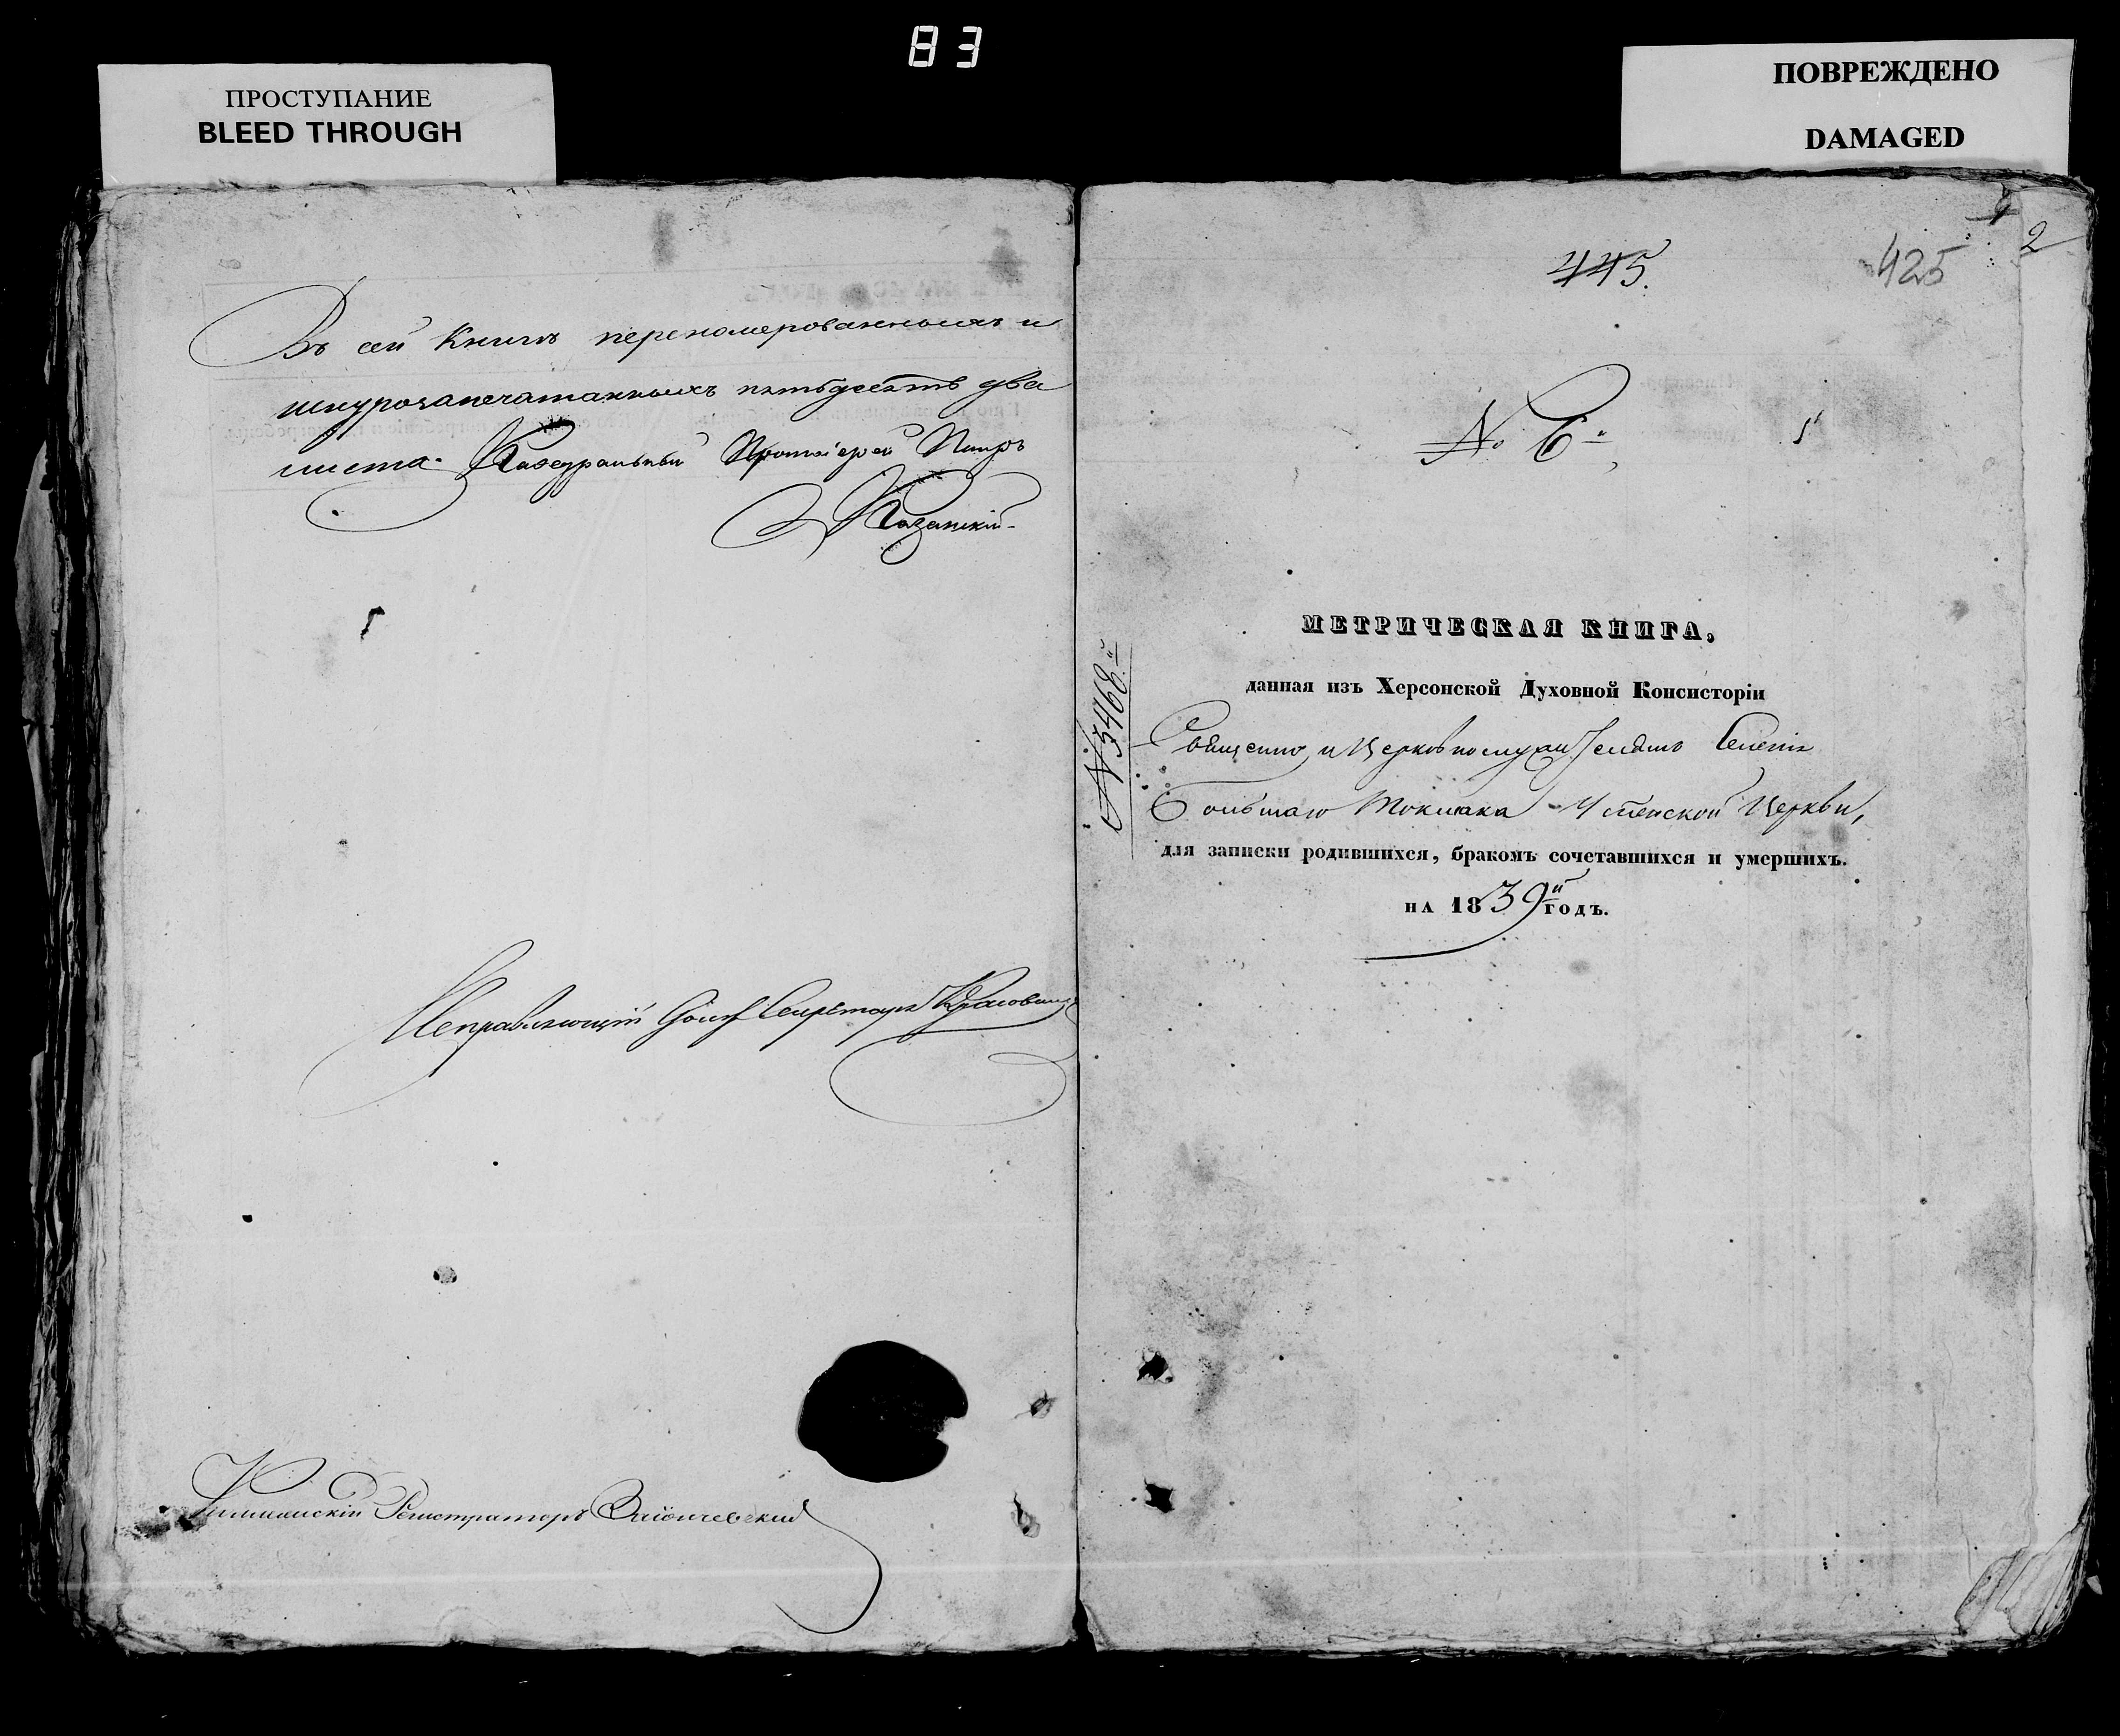 83
ПРОСТУПАНИЕ
BLEED THROUGH
ПОВРЕЖДЕНО
DAMAGED
Въ сей Книге перономерованныхъ и
шнурозапечатанныхъ пятьдесятъ два
листа. Кафедральный Протоіерей Петръ
Казанскій
Исправляющій Секретаря
Регистраторъ
2
445.
425
№ 6
МЕТРИЧЕСКАЯ КНИГА,
данная изъ Херсонской Духовной Консисторіи
Священно и Церковнослужителямъ Селенія
Большаго Токмака Успенской Церкви,
для записки родившихся, бракомъ сочетавшихся и умершихъ.
НА 1839й ГОДЪ.
№ 3468й